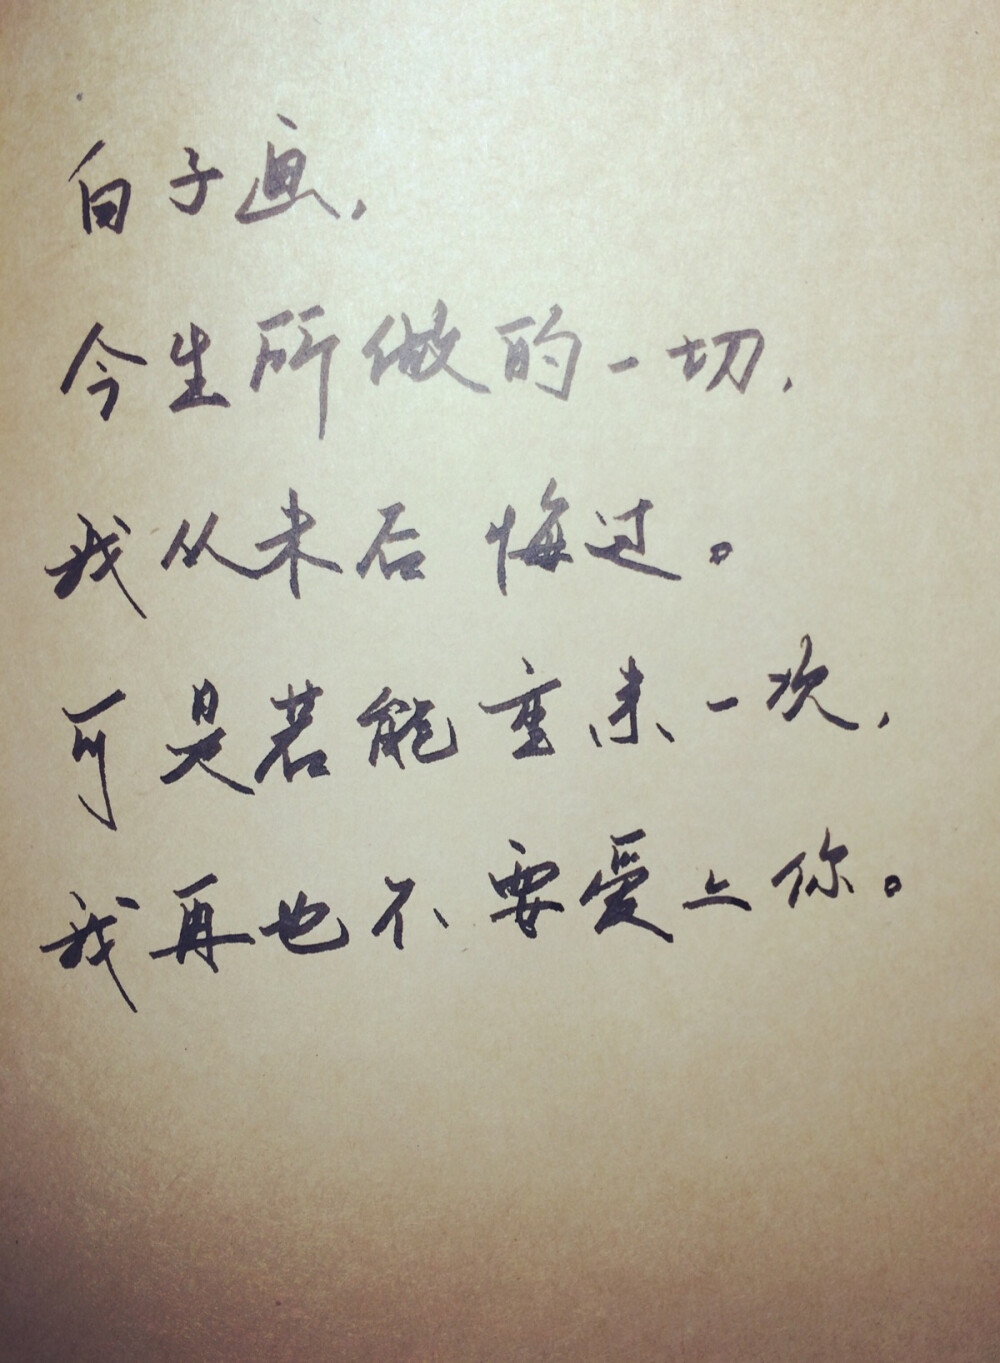 白子画，
今生所做的一切，
我从未后悔过。
可是若能重来一次，
我再也不要爱上你。